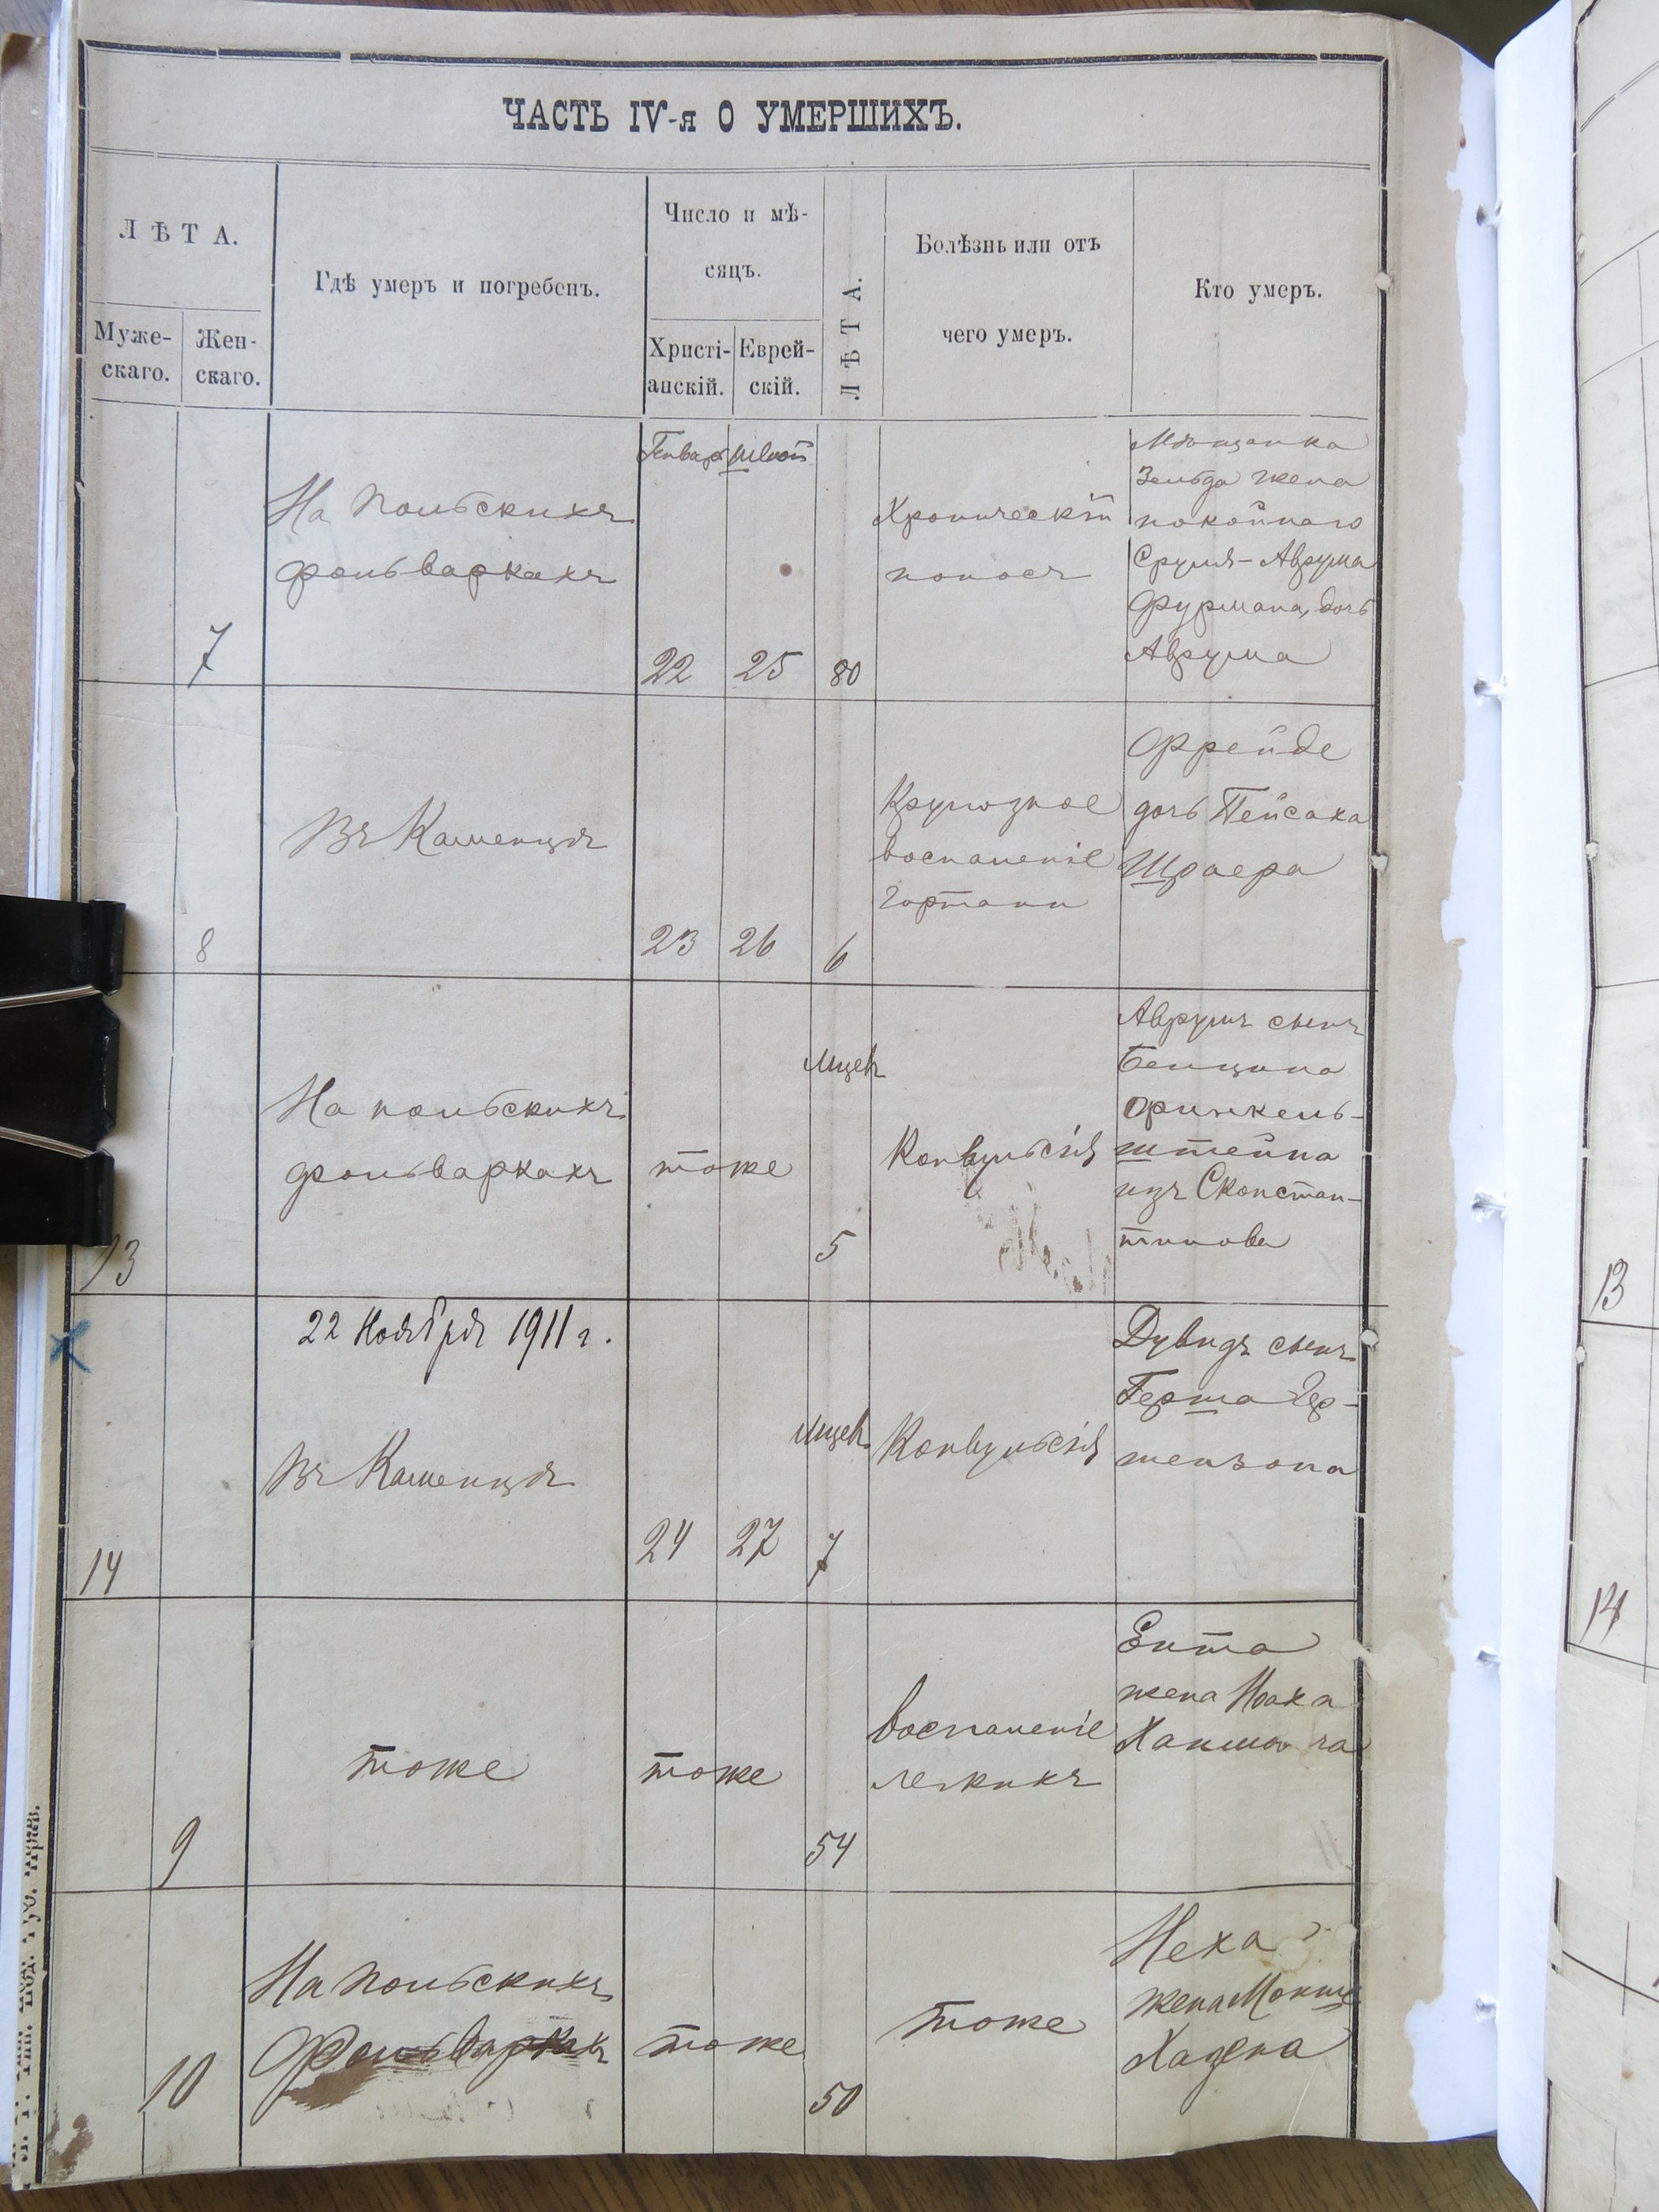 ЧАСТЬ IV-я О УМЕРШИХЪ.
ЛѢТА.
Муже-
скаго.
Жен-
скаго.
Гдѣ умеръ и погребенъ.
Число и мѣ-
сяцъ.
Христі-
анскій.
Еврей-
скій.
ЛѢТА.
Болѣзнь или отъ
чего умеръ.
Кто умеръ.
7
На Польскихъ
фольваркахъ
Генваря
Шватъ
22
25
80
Хроническій
поносъ
Мѣщанка
Зельда жена
покойнаго
Сруля-Аврума
Фурмана, дочь
Аврума
8
Въ Каменцѣ
23
26
6
Крупозное
воспаленіе
гортани
Фрейде
дочь Пейсаха
Шраера
13
На польскихъ
фольваркахъ
тоже
Мцев
5
Конвульсія
Аврумъ сынъ
Бенциона
Финкель-
штейна
изъ Сконстан-
тинова
14
22 Ноября 1911 г.
Въ Каменцѣ
24
27
Мцев
7
Конвульсія
Дувидъ сынъ
Герша Гер-
шензона
9
тоже
тоже
54
Воспаленіе
легкихъ
Ента
жена Ноаха
10
На Польскихъ
Фольваркахъ
тоже
50
тоже
Неха
жена Мошке
Хазена
13
14